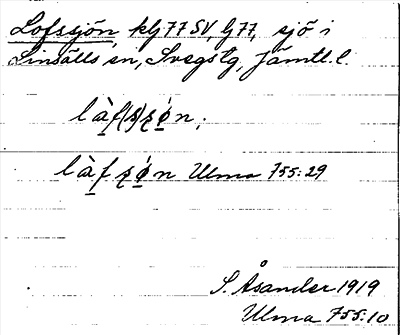 Lofssjön, kbl 77 SV, Gj 77, sjö i
Linsälls sn, Svegs tg, Jämtl. l.
là̱f(s)ʂọ́n;
là̱fʂọ́n Ulma 755:29
S. Åsander 1919
Ulma 755:10